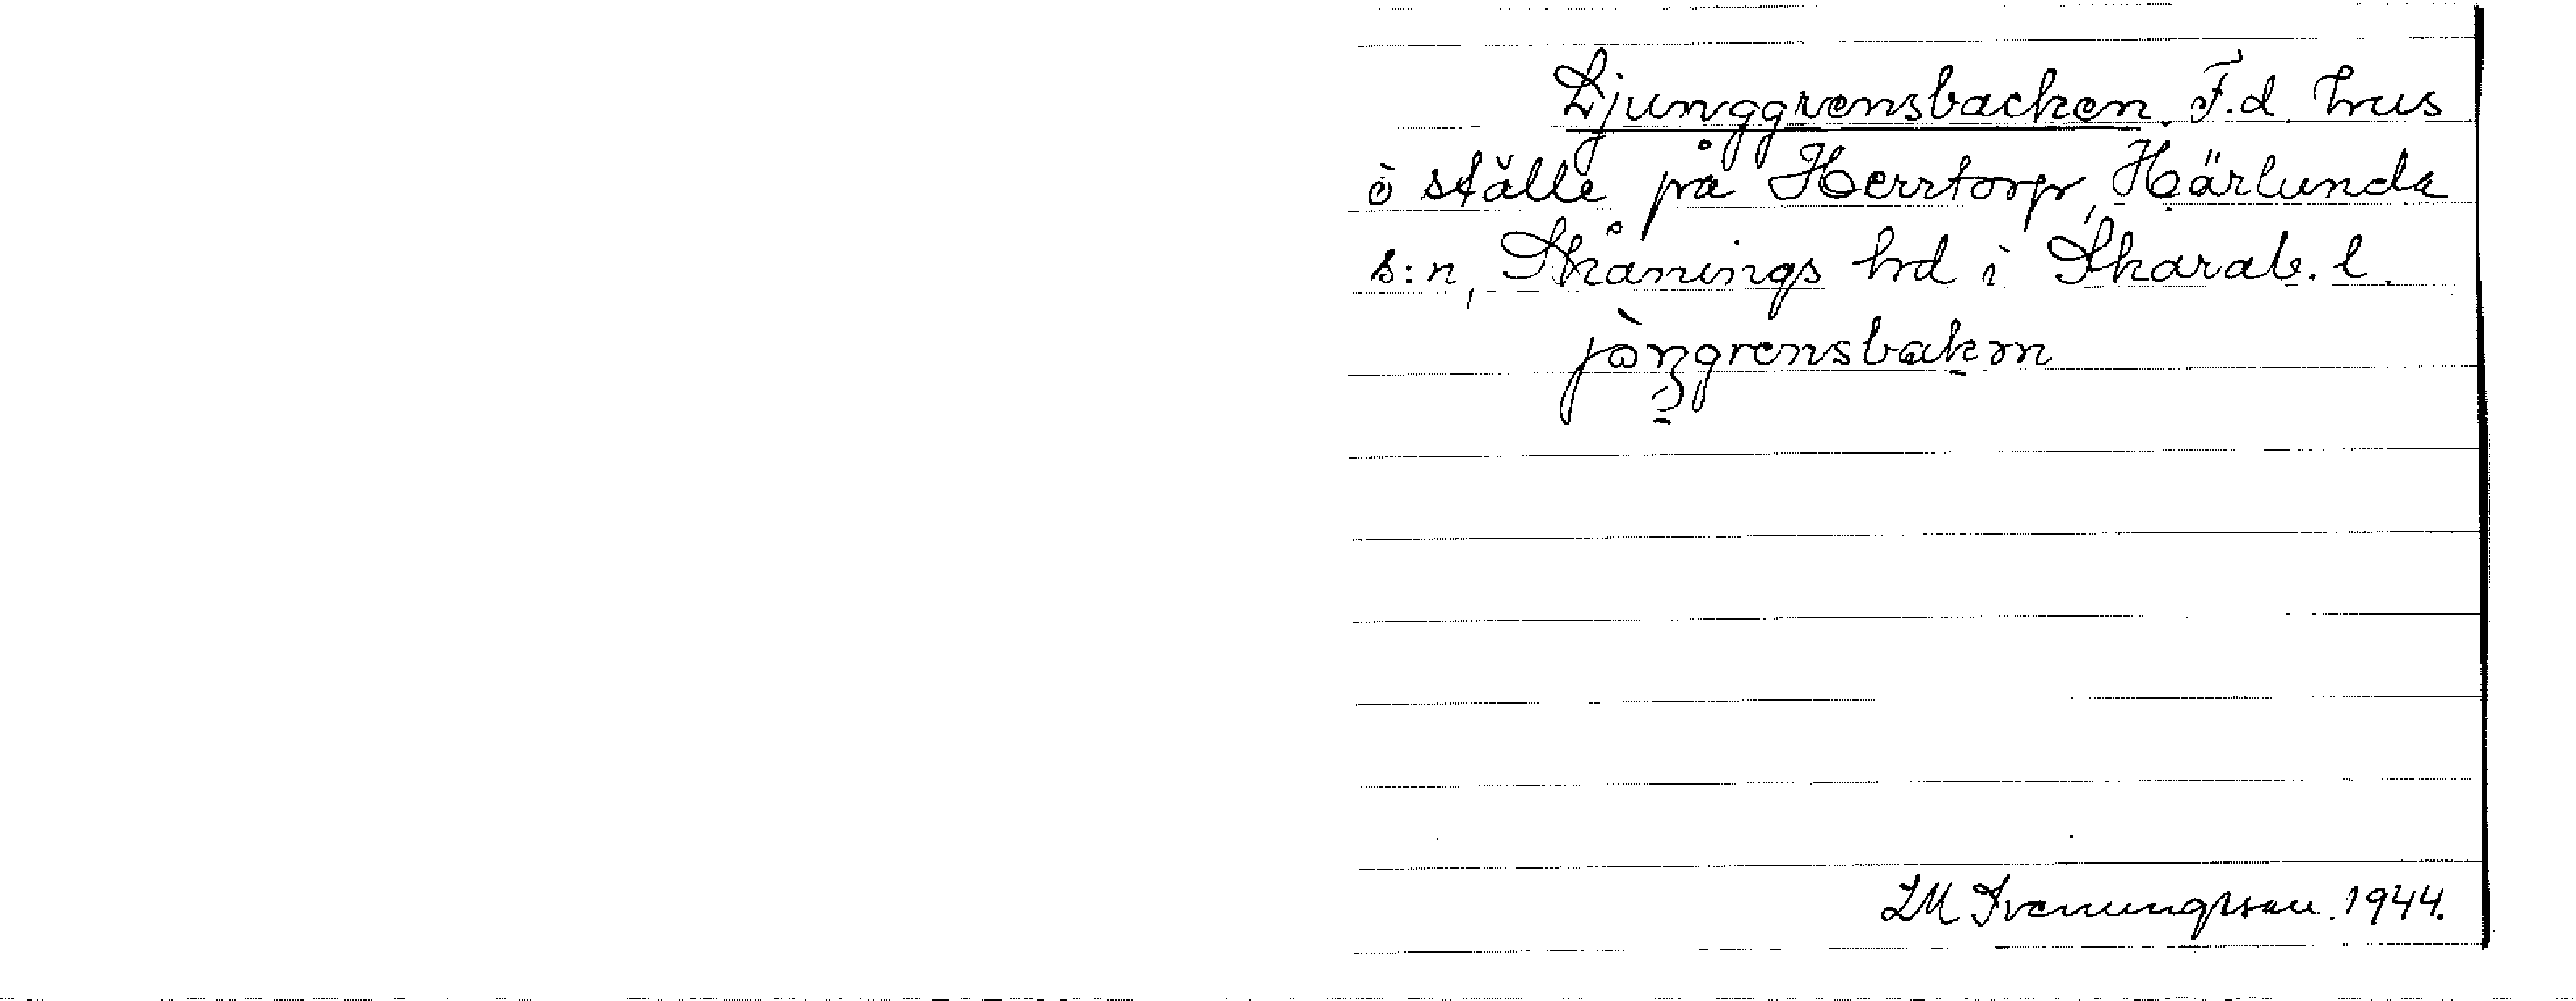 Ljunggrensbacken. F.d. hus
ò ställe på Herrtorp, Härlunda
s:n, Skånings hd i Skarab. l.
jòŋgrensbakm
LM Svenungsson. 1944.